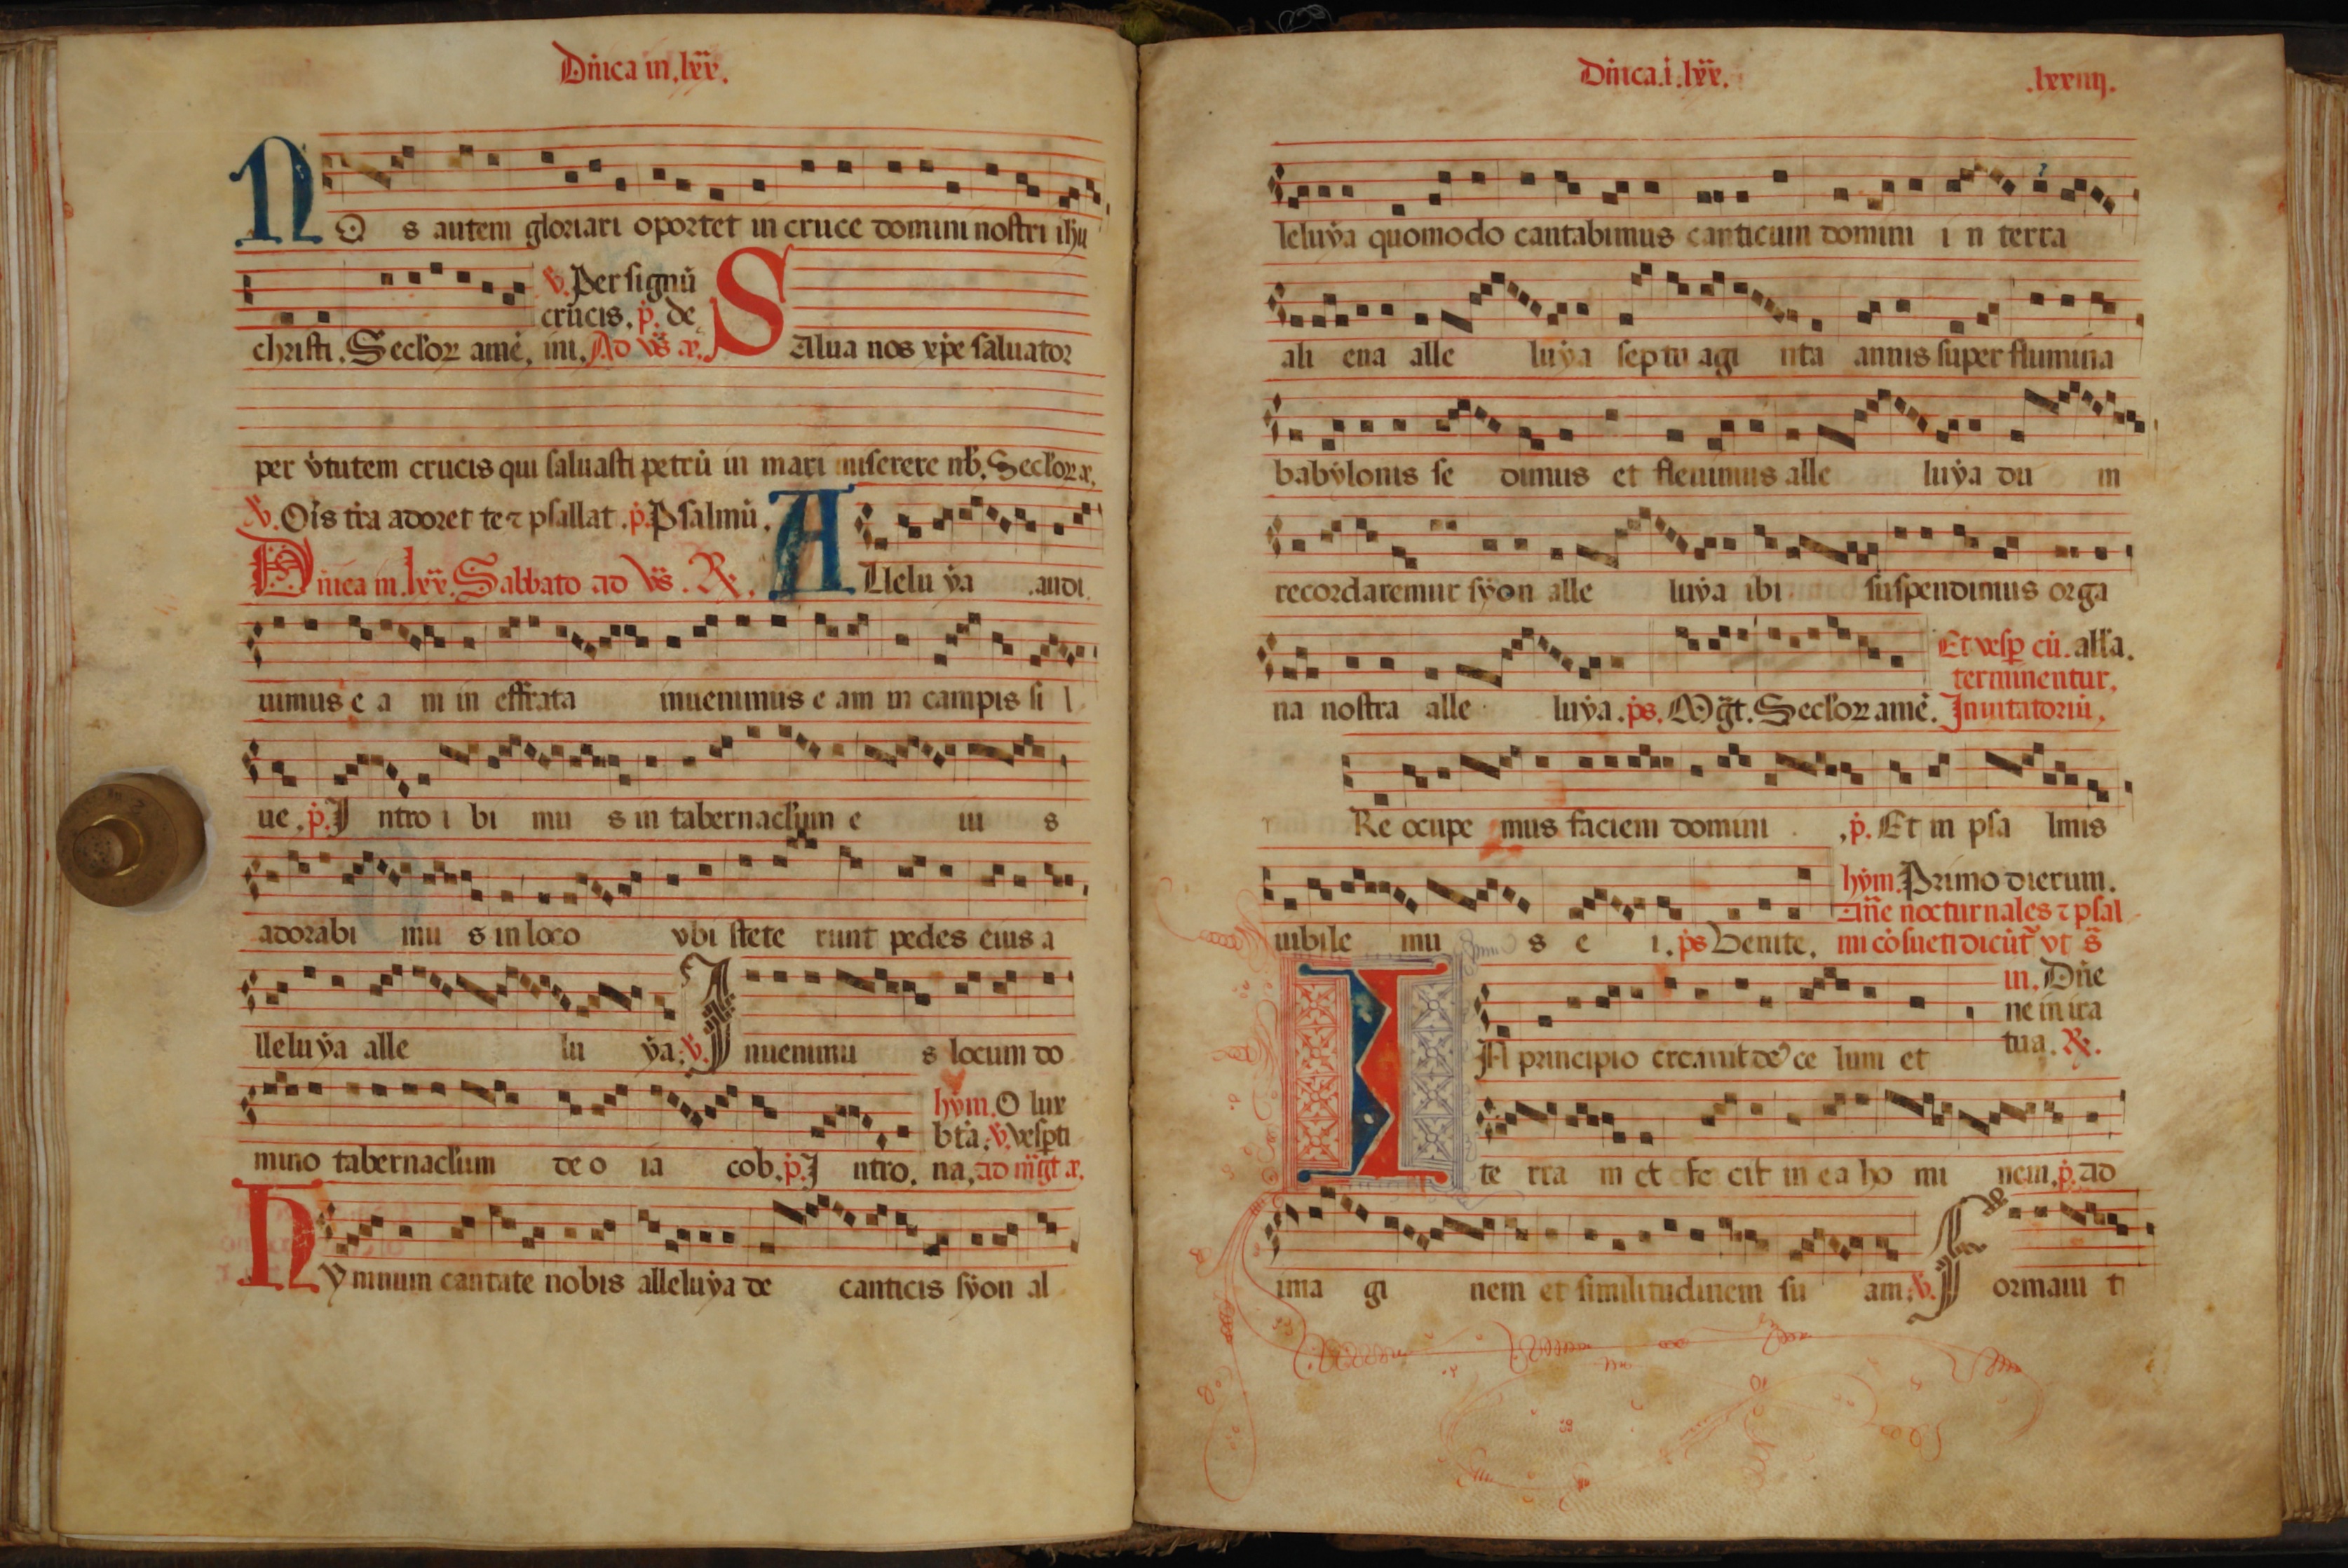 Dnica in .lxx.
NO s autem gloriari oportet in cruce domini nostri ihu
christi. Seclor amē. iiii. Ad vs̄ a.
v. Per signū
crucis. p. de
Salua nos xpe saluator
per vtutem crucis qui saluasti petrū in mari miserere nb. Seclor a.
v. Ois tra adoret te ⁊ psallat. p. Psalmū. A Llelu ya audi
Dnica in .lxx. Sabbato ad vs̄. R.
uimus e a m in effrata inuenimus e am in campis si l
ue. p. I ntro i bi mu s in tabernaclum e iu s
adorabi mu s in loco vbi stete runt pedes eius a
lleluya alle lu ya. v. I nuenimu s locum do
mino tabernaclum de o ia cob. p. I ntro.
hym. O lux
bta. v. vesperti
na. ad mgt a.
Hymnum cantate nobis alleluya de canticis syon al
Dnica .i. lxx. .lxxiiij.
leluya quomodo cantabimus canticum domini i n terra
ali ena alle luya septu agi nta annis super flumina
babylonis se dimus et fleuimus alle luya du m
recordaremur syon alle luya ibi suspendimus orga
na nostra alle luya. ps. Mgt. Seclor amē.
Et vesp cū. alla.
terminentur.
Inuitatoriū.
Re ocupe mus faciem domini . p. Et in psa lmis
iubile mu s e i. ps Venite.
hym. Primo dierum.
Añe nocturnales ⁊ psal
mi cōsueti dicūt vt s̄
in. Dñe
ne in ira
tua. R.
IN principio creauit de' ce lum et
te rra m et fe cit in ea ho mi nem. p. ad
ima gi nem et similitudinem su am. v. F ormaui t